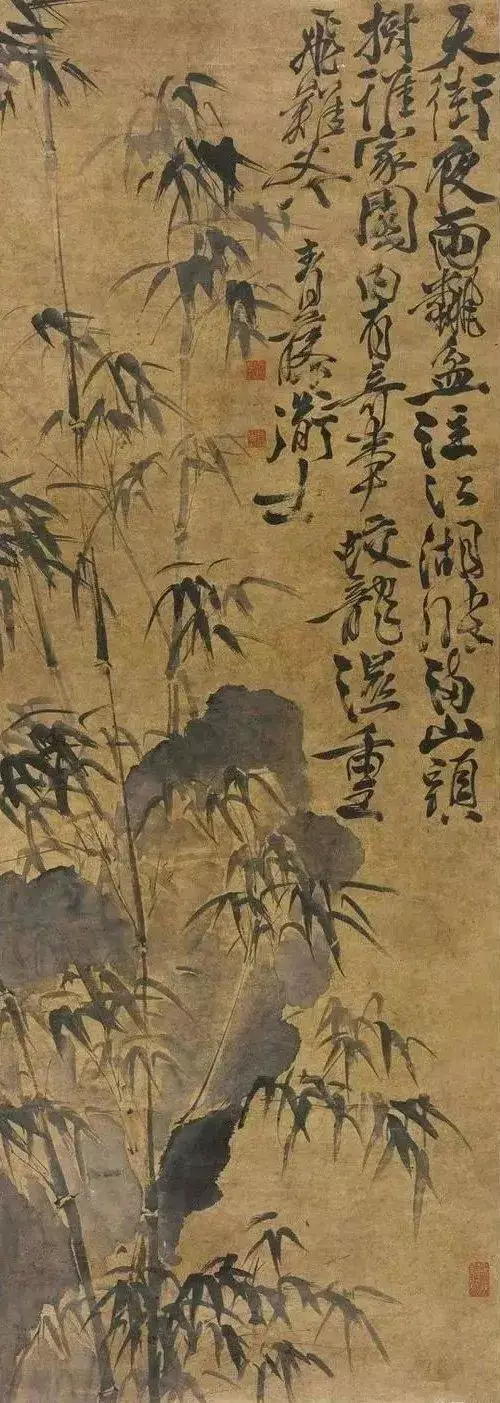 天街夜雨翻盆注江湖漲滿山頭
樹誰家園內有奇事蛟龍濕重
飛難去 青藤士